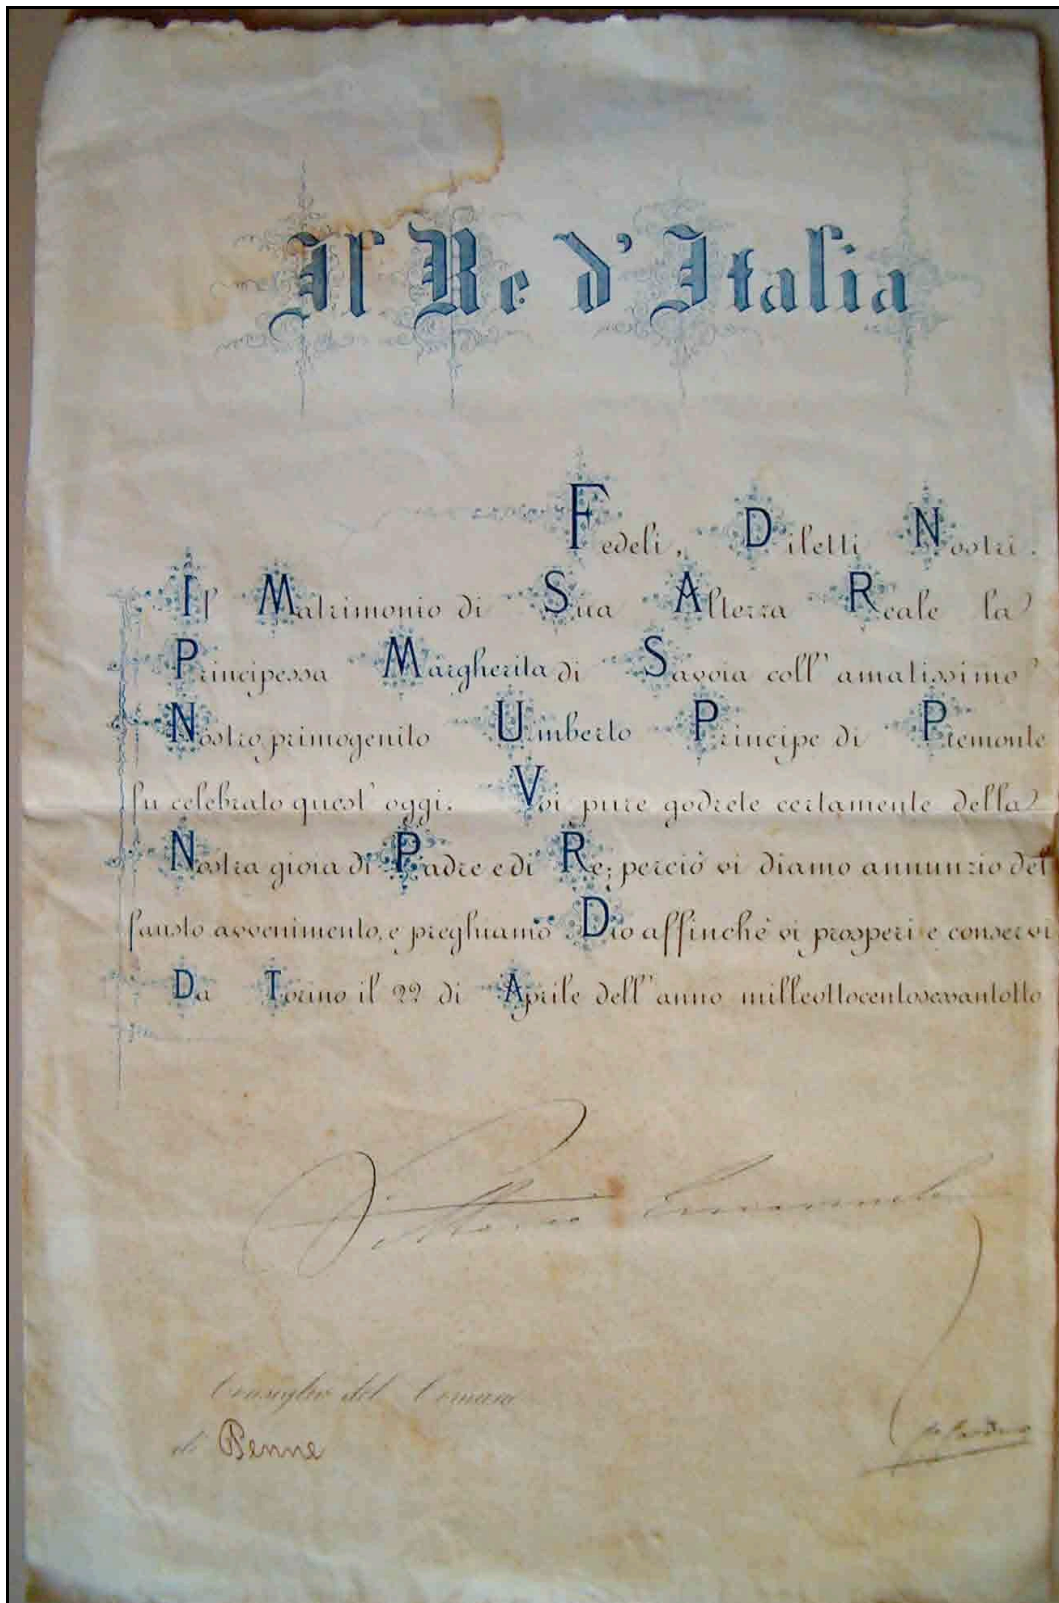 Il Re d'Italia
Fedeli, Diletti Nostri.
Il Matrimonio di Sua Altezza Reale la
Principessa Margherita di Savoia coll' amatissimo
Nostro primogenito Umberto Principe di Piemonte
fu celebrato quest' oggi. Voi pure godrete certamente della
Nostra gioia di Padre e di Re; perciò vi diamo annunzio del
fausto avvenimento, e preghiamo Dio affinchè vi prosperi e conservi
Da Torino il 22 di Aprile dell' anno milleottocentosessantotto
Vittorio Emanuele
Consiglio del Comune
di Penne